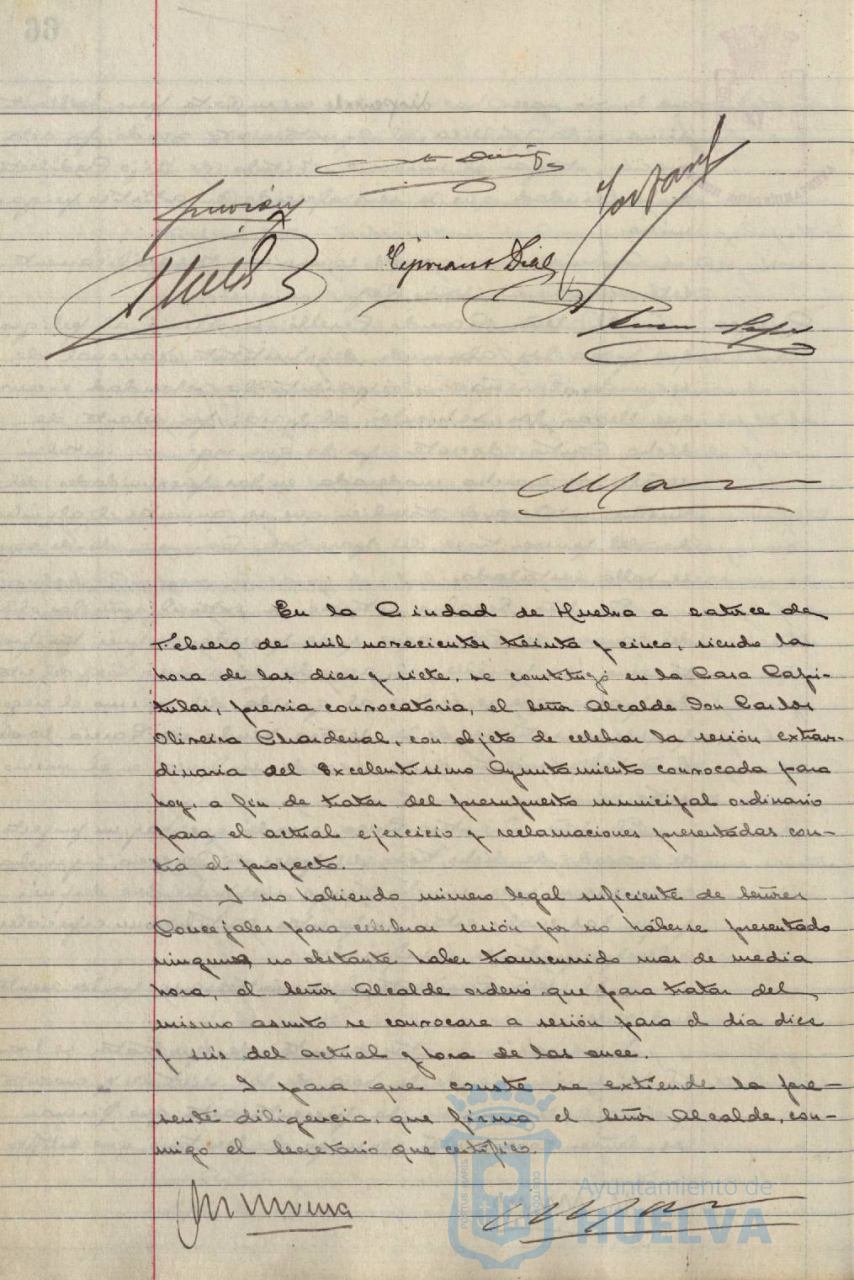 Cipriano Dial
En la Ciudad de Huelva a catorce de
Febrero de mil novecientos treinta y cinco, siendo la
hora de las diez y siete, se constituyó en la Casa Capi-
tular, previa convocatoria, el Señor Alcalde Don Carlos
Oliveira Chardenal, con objeto de celebrar la sesión extraor-
dinaria del Excelentísimo Ayuntamiento convocada para
hoy, a fin de tratar del presupuesto municipal ordinario
para el actual ejercicio y reclamaciones presentadas con-
tra el proyecto.
Y no habiendo número legal suficiente de Señores
Concejales para celebrar sesión por no haberse presentado
ninguno no obstante haber transcurrido mas de media
hora, el Señor Alcalde ordenó que para tratar del
mismo asunto se convocase a sesión para el día diez
y seis del actual y hora de las once.
Y para que conste se extiende la pre-
sente diligencia, que firma el Señor Alcalde, con-
migo el Secretario que certifico.
Ayuntamiento de
HUELVA